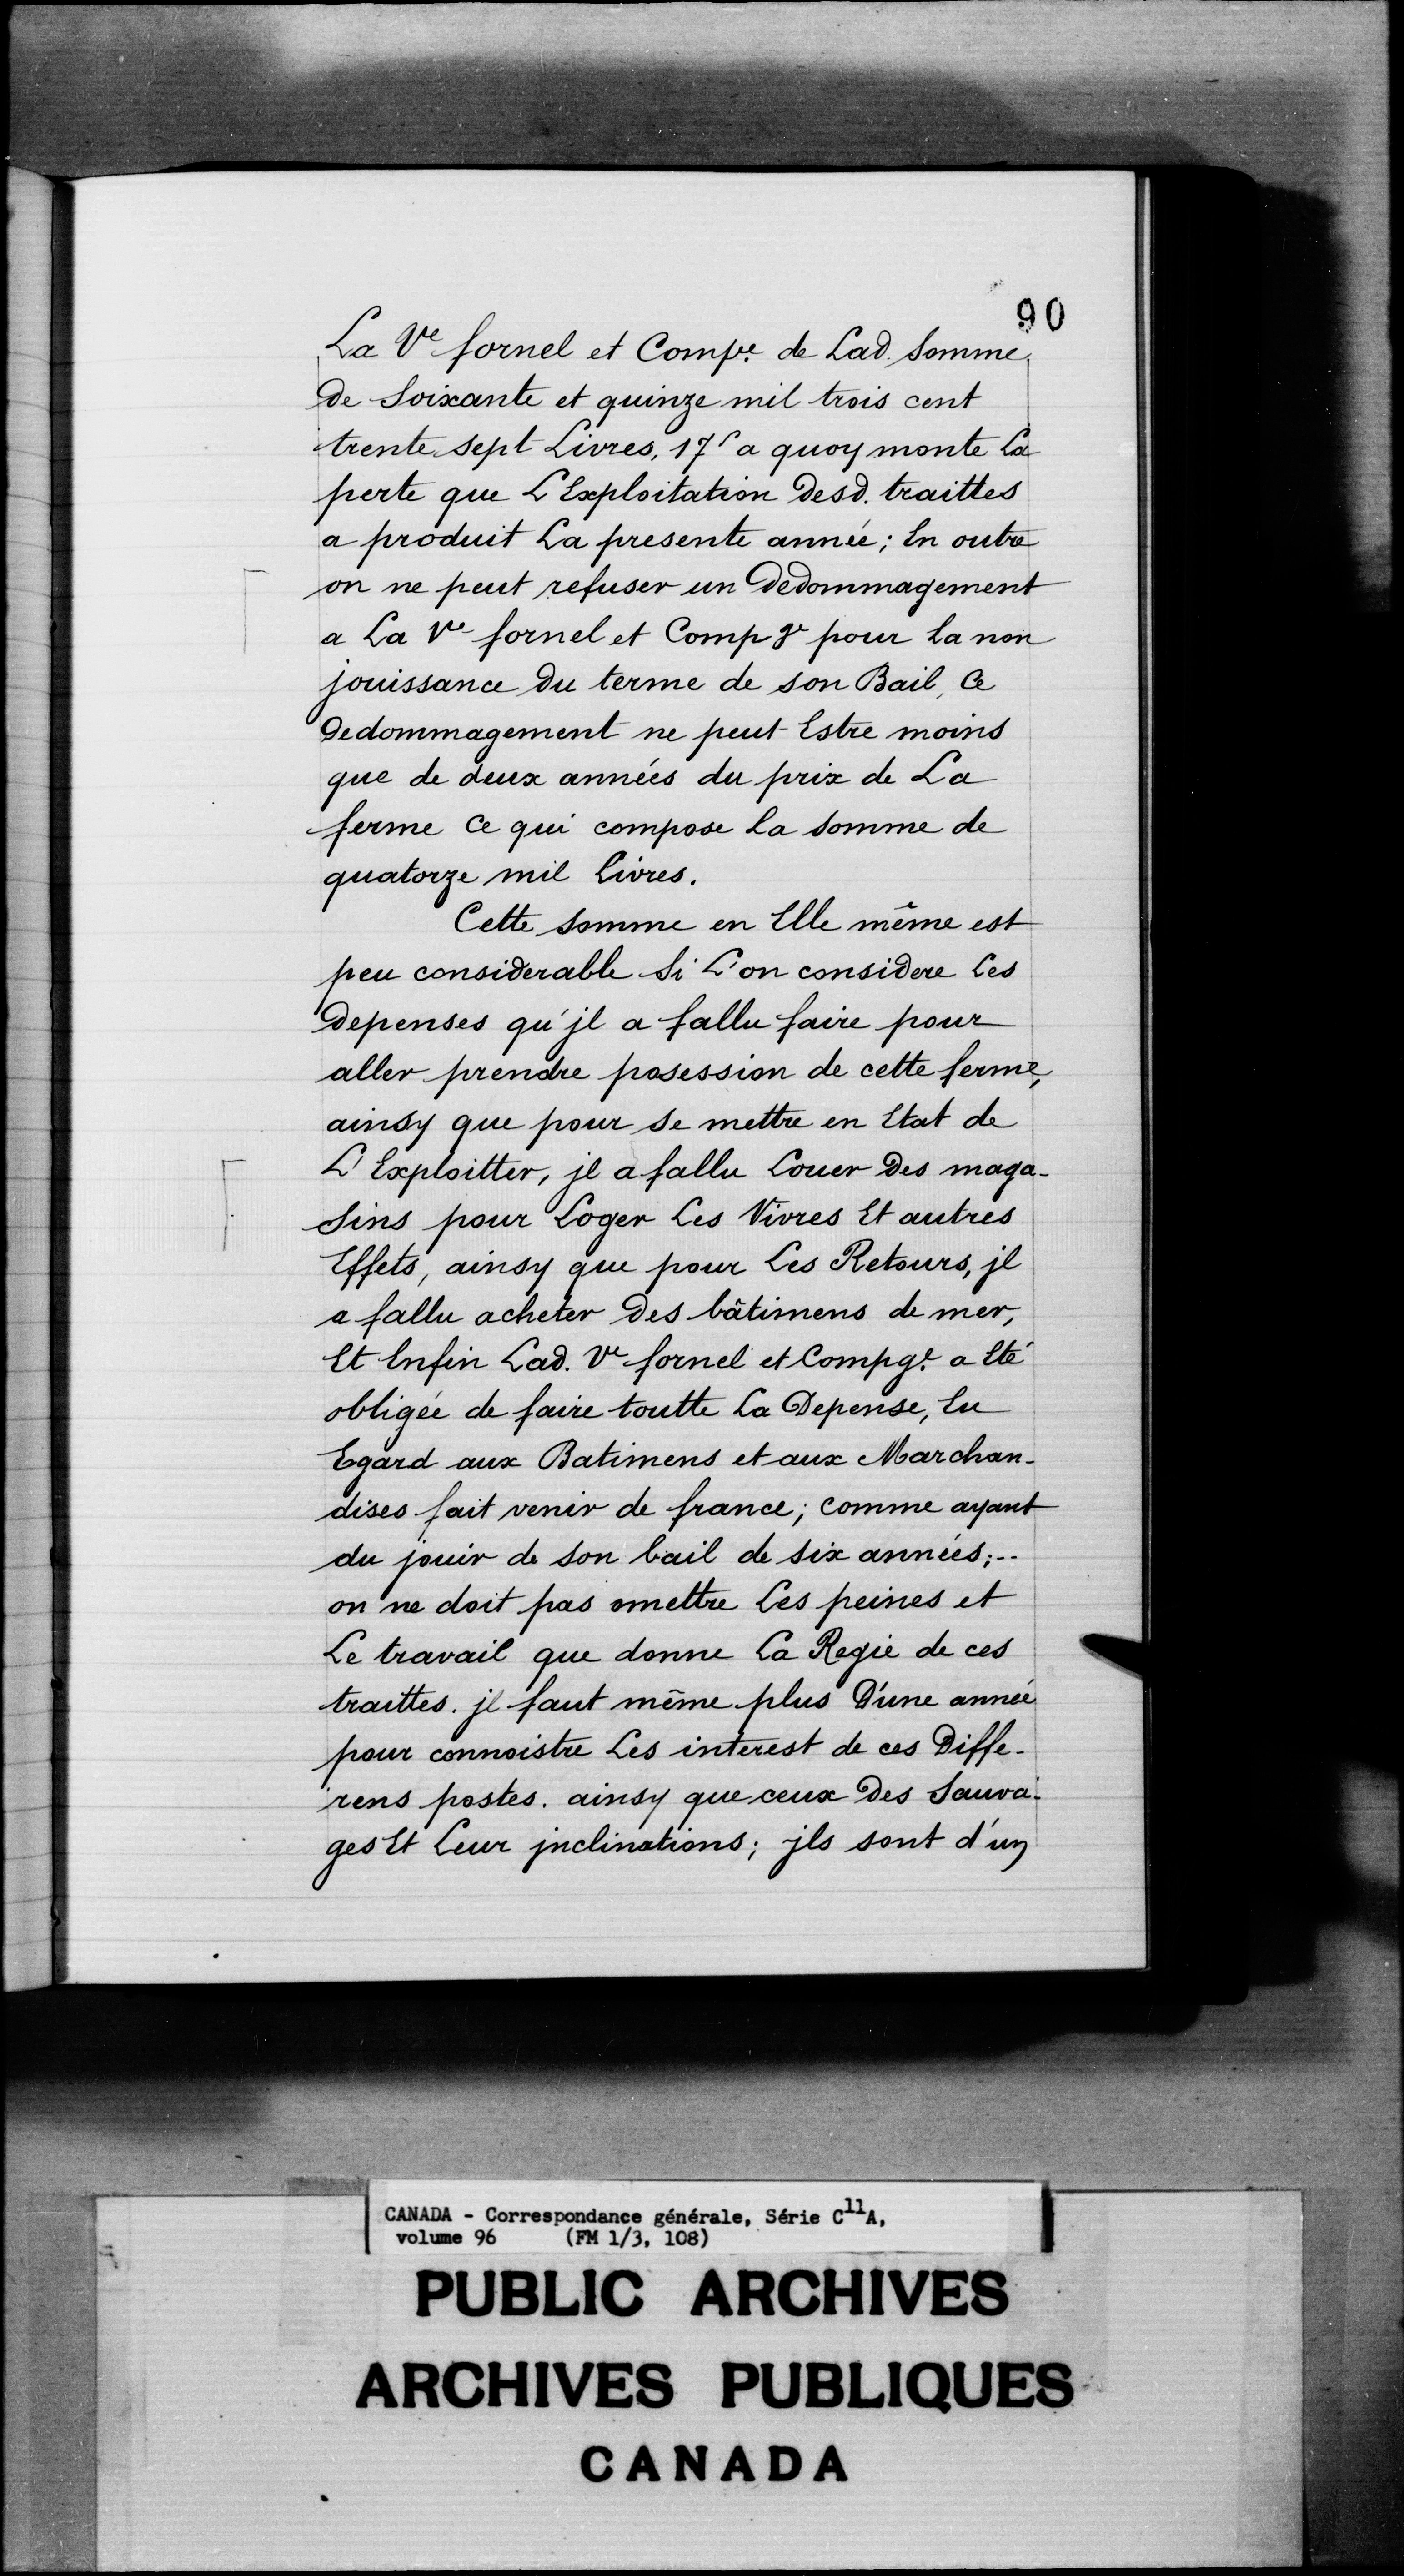 90
La Ve fornel et Compe. de Lad. Somme
de Soixante et quinze mil trois cent
trente sept Livres, 17s a quoy monte La
perte que L'Exploitation Desd. traittes
a produit La presente année; En outre
on ne peut refuser un Dedommagement
a La Ve fornel et Compge pour La non
jouissance Du terme de son Bail, Ce
Dedommagement ne peut Estre moins
que de deux années du prix de La
ferme Ce qui compose La Somme de
quatorze mil Livres.
Cette somme en Elle même est
peu considerable Si L'on considere Les
Depenses qu'jl a fallu faire pour
aller prendre posession de cette ferme,
ainsy que pour se mettre en Etat de
L'Exploitter, jl a fallu Louer Des maga-
Sins pour Loger Les Vivres Et autres
Effets, ainsy que pour Les Retours, jl
a fallu acheter Des bâtimens de mer,
Et Enfin Lad. Ve fornel et Compge. a Eté
obligée de faire toutte La Depense, Eu
Egard aux Batimens et aux Marchan-
dises fait venir de france; comme ayant
du jouir de son bail de six années;--
on ne doit pas omettre Les peines et
Le travail que donne La Regie de ces
traittes. jl faut même plus D'une année
pour connoistre Les interest de ces Diffe-
rens postes. ainsy que ceux Des Sauva-
ges Et Leur jnclinations; jls sont d'un
CANADA - Correspondance générale, Série C11A,
volume 96 (FM 1/3, 108)
PUBLIC ARCHIVES
ARCHIVES PUBLIQUES
CANADA